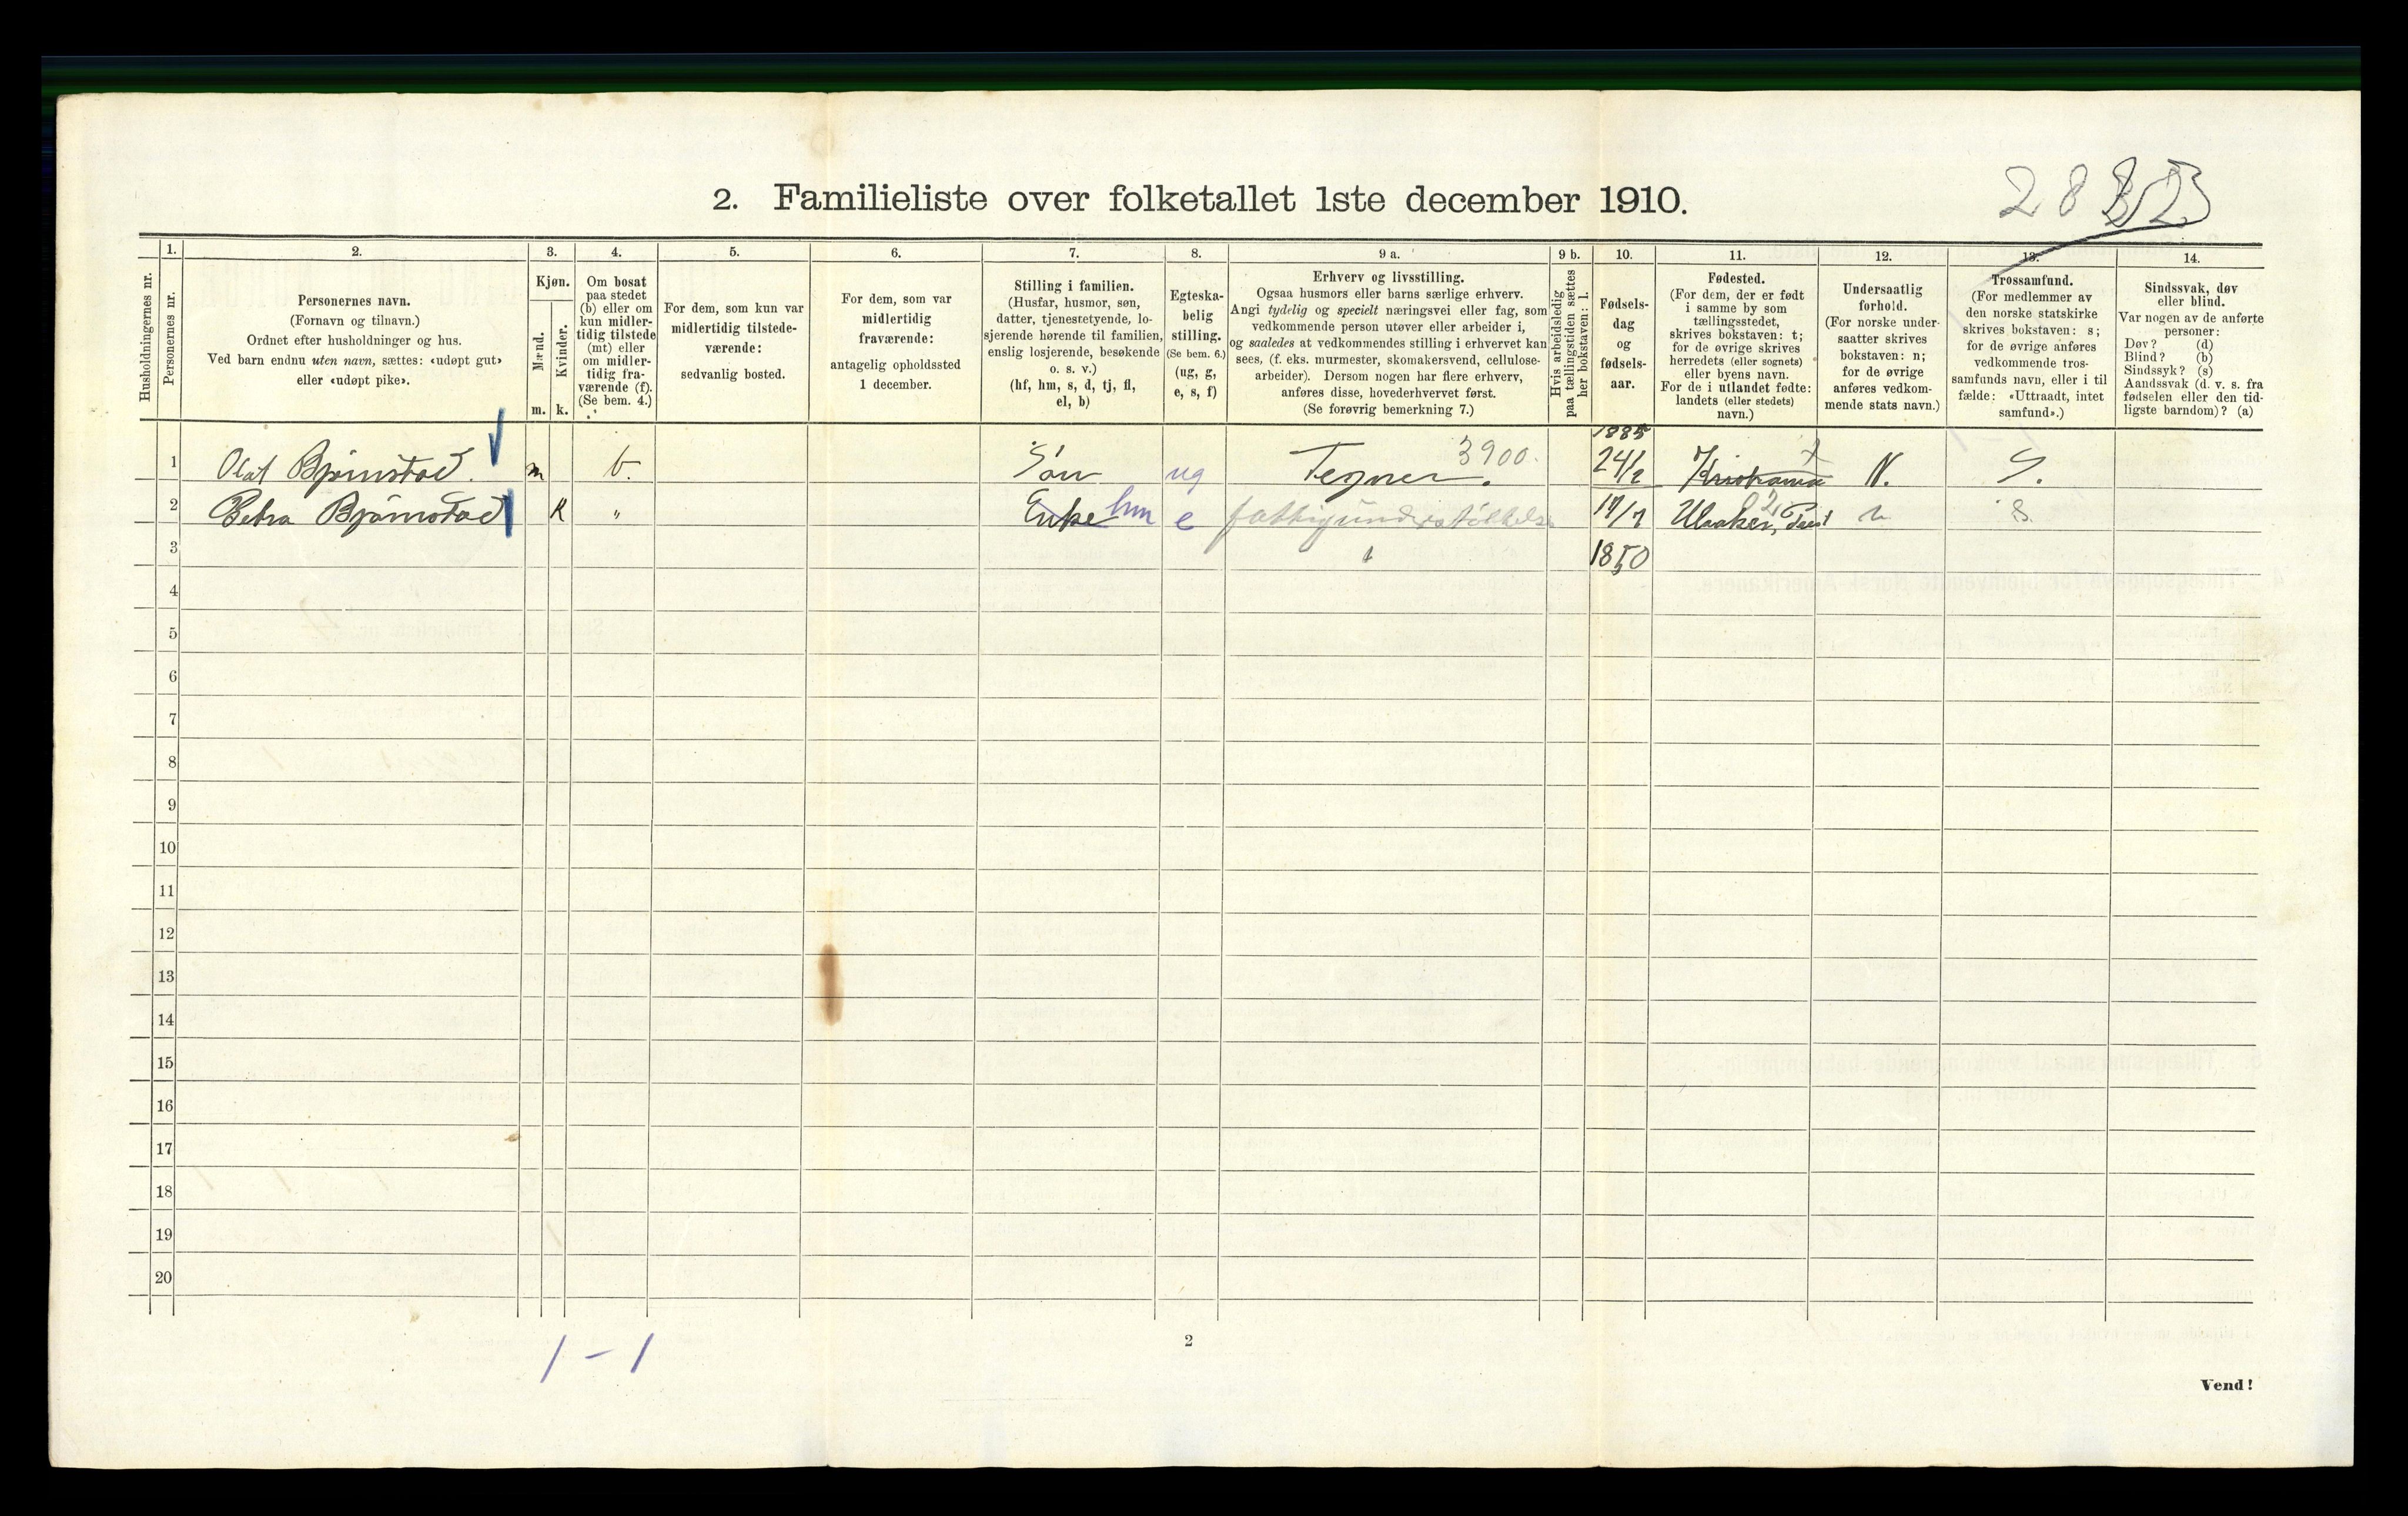 2. Familieliste over folketallet 1ste december 1910.
1. 2. 3. 4. 5. 6. 7. 8. 9 a. 9 b. 10. 11. 12. 13. 14.
Husholdningernes nr.
Personernes nr.
Personernes navn.
(Fornavn og tilnavn.)
Ordnet efter husholdninger og hus.
Ved barn endnu uten navn, sættes: «udøpt gut»
eller «udøpt pike».
Kjøn.
Mænd.
m.
Kvinder.
k.
Om bosat
paa stedet
(b) eller om
kun midler-
tidig tilstede
(mt) eller
om midler-
tidig fra-
værende (f).
(Se bem. 4.)
For dem, som kun var
midlertidig tilstede-
værende:
sedvanlig bosted.
For dem, som var
midlertidig
fraværende:
antagelig opholdssted
1 december.
Stilling i familien.
(Husfar, husmor, søn,
datter, tjenestetyende, lo-
sjerende hørende til familien,
enslig losjerende, besøkende
o. s. v.)
(hf, hm, s, d, tj, fl,
el, b)
Egteska-
belig
stilling.
(Se bem. 6.)
(ug, g,
e, s, f)
Erhverv og livsstilling.
Ogsaa husmors eller barns særlige erhverv.
Angi tydelig og specielt næringsvei eller fag, som
vedkommende person utøver eller arbeider i,
og saaledes at vedkommendes stilling i erhvervet kan
sees, (f. eks. murmester, skomakersvend, cellulose-
arbeider). Dersom nogen har flere erhverv,
anføres disse, hovederhvervet først.
(Se forøvrig bemerkning 7.)
Hvis arbeidsledig
paa tællingstiden sættes
her bokstaven: l.
Fødsels-
dag
og
fødsels-
aar.
Fødested.
(For dem, der er født
i samme by som
tællingsstedet,
skrives bokstaven: t;
for de øvrige skrives
herredets (eller sognets)
eller byens navn.
For de i utlandet fødte:
landets (eller stedets)
navn.)
Undersaatlig
forhold.
(For norske under-
saatter skrives
bokstaven: n;
for de øvrige
anføres vedkom-
mende stats navn.)
Trossamfund.
(For medlemmer av
den norske statskirke
skrives bokstaven: s;
for de øvrige anføres
vedkommende tros-
samfunds navn, eller i til
fælde: «Uttraadt, intet
samfund».)
Sindssvak, døv
eller blind.
Var nogen av de anførte
personer:
Døv? (d)
Blind? (b)
Sindssyk? (s)
Aandssvak (d. v. s. fra
fødselen eller den tid-
ligste barndom)? (a)
1885
1 Olaf Bjørnstad. m b. Søn ug Tegner. 3900. 24/2 Kristiania t N. S.
2 Petra Bjørnstad K " Enke hm e fattigunderstøttelse 17/7 n s.
3 1850
4
5
6
7
8
9
10
11
12
13
14
15
16
17
18
19
20
1 – 1
2
Vend!